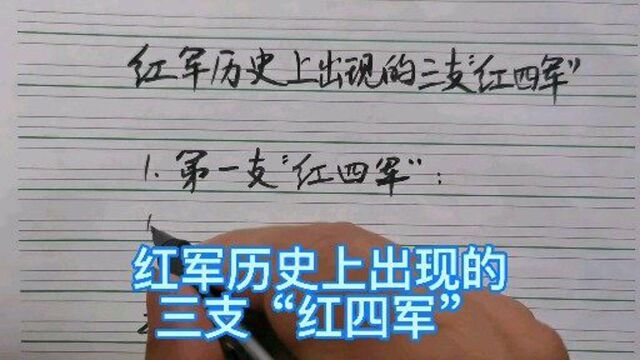 红军历史上出现的三支“红四军”
1.第一支“红四军”:
红军历史上出现的
三支“红四军”